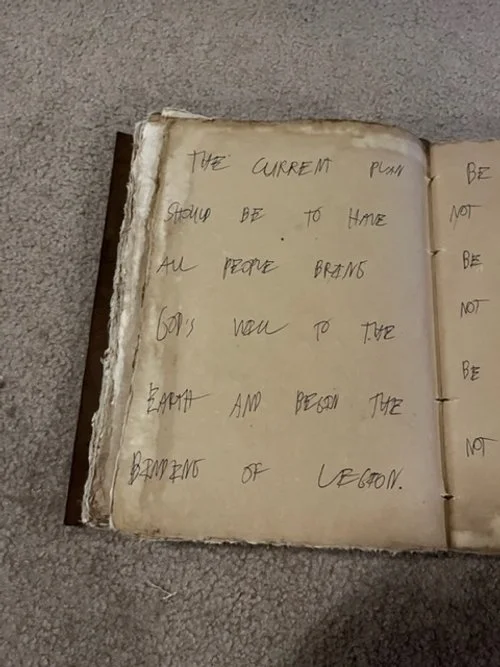 THE CURRENT PLAN
SHOULD BE TO HAVE
ALL PEOPLE BRING
GOD'S WILL TO THE
EARTH AND BEGIN THE
BINDING OF LEGION.
BE
NOT
BE
NOT
BE
NOT